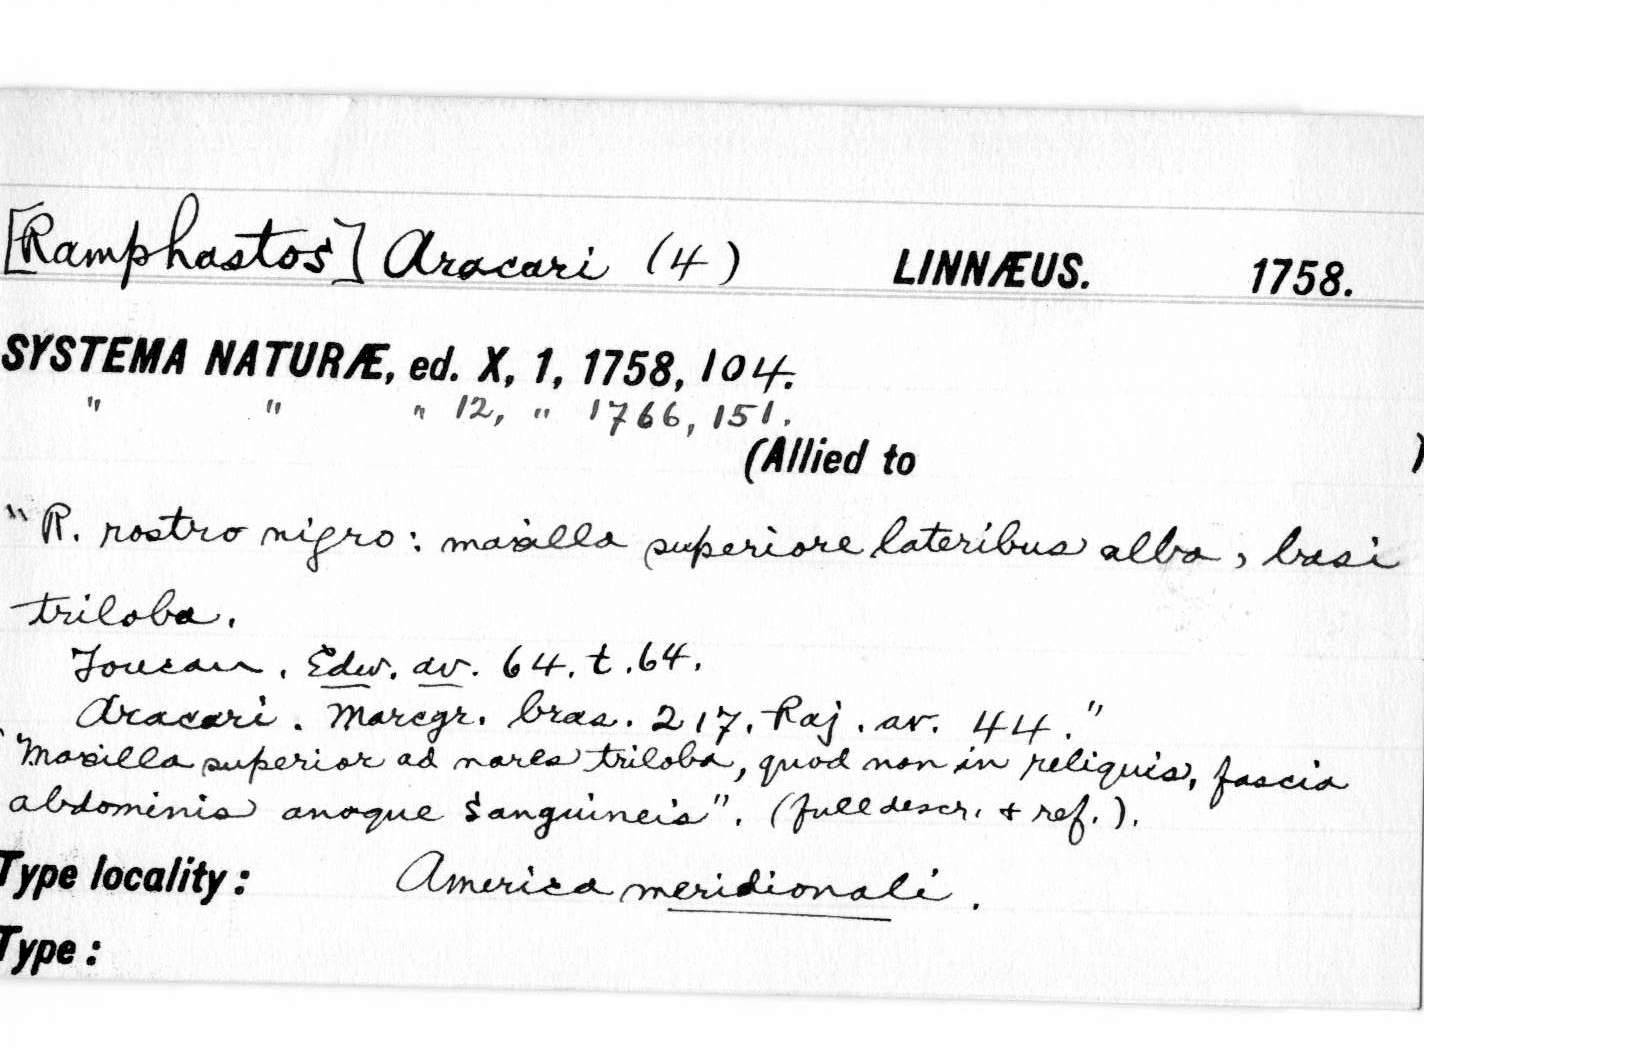 [Ramphastos] Aracari (4) LINNÆUS. 1758.
SYSTEMA NATURÆ, ed. X, 1, 1758, 104.
" " " 12, " 1766, 151.
(Allied to )
"R. rostro nigro: maxilla superiore lateribus alba, basi
triloba.
Toucan. Edw. av. 64. t. 64.
Aracari. Marcgr. bras. 217. Raj. av. 44."
"Maxilla superior ad nares triloba, quod non in reliquis, fascia
abdominis anoque sanguineis". (full descr. + ref.).
Type locality: America meridionali.
Type: